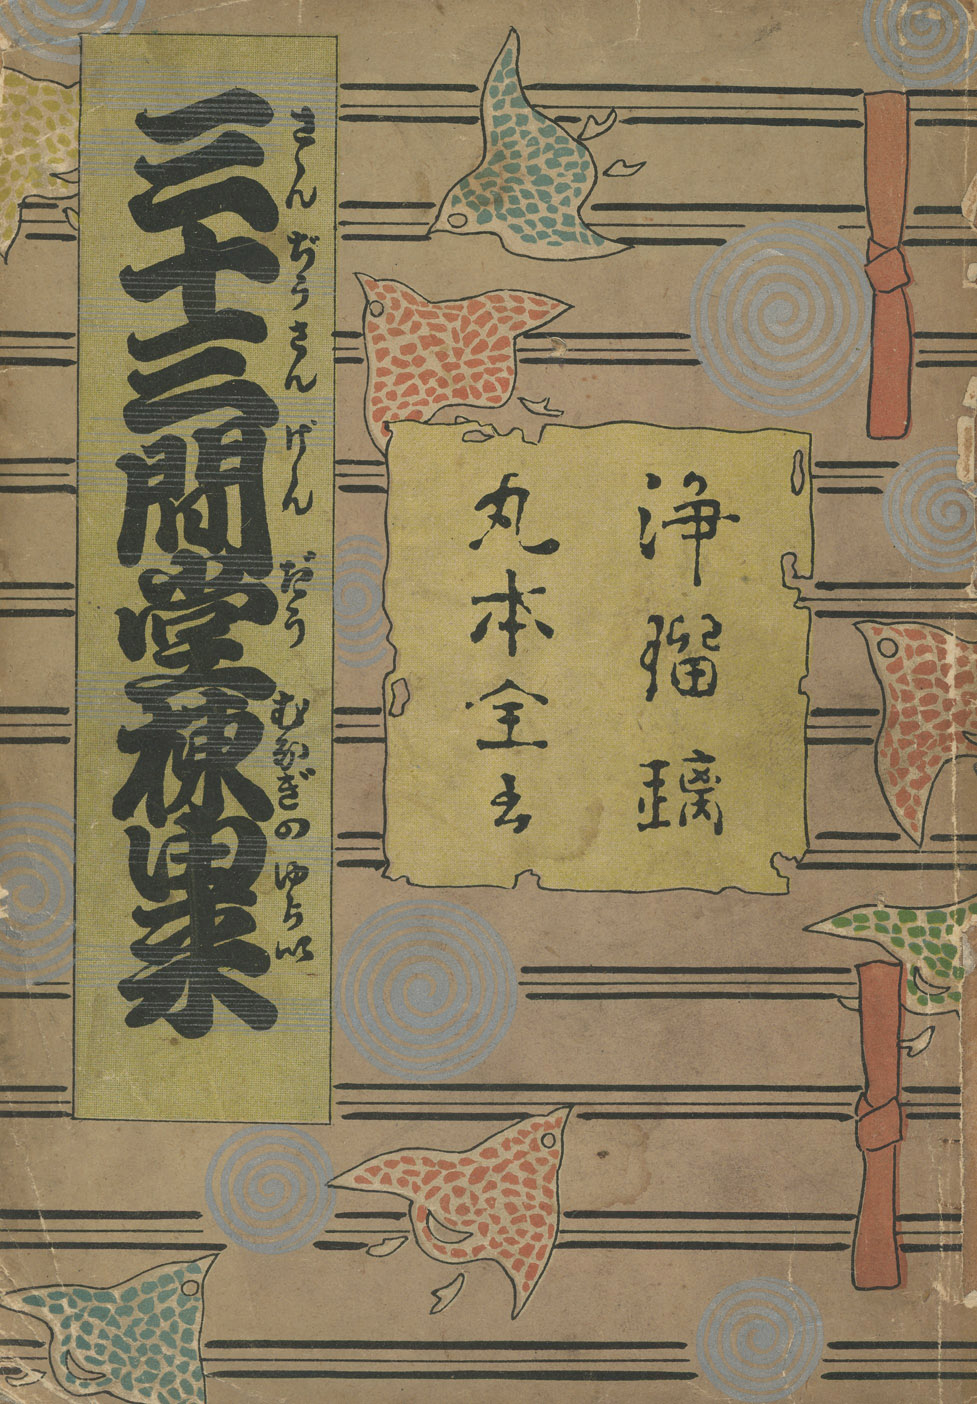 浄瑠璃
丸本全書
三十三間堂棟由来
さんぢうさんげんだうむなぎのゆらい